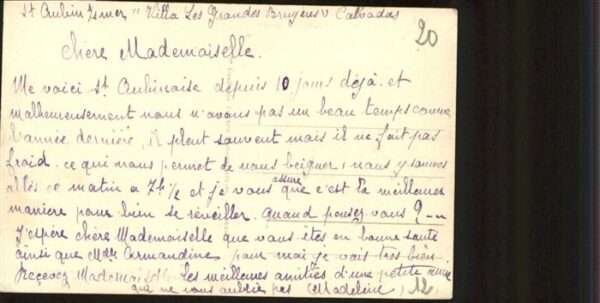 St Aubin s/mer "Villa Les Grandes Bruyères" Calvados
20
Chère Mademoiselle.
Me voici St Aubinaise depuis 10 jours déjà et
malheureusement nous n'avons pas un beau temps comme
l'année dernière, il pleut souvent mais il ne fait pas
froid. ce qui nous permet de nous beigner, nous y sommes
allés ce matin a 7h ½ et je vous assure que c'est la meilleure
manière pour bien se réveiller. Quand pensez vous ? --
J'espère chère Mademoiselle que vous êtes en bonne santé
ainsi que Armandine pour moi je vais très bien.
Recevez Mademoiselle Les meilleures amitiés d'une petite amie
qui ne vous oublie pas (Madeleine) 12